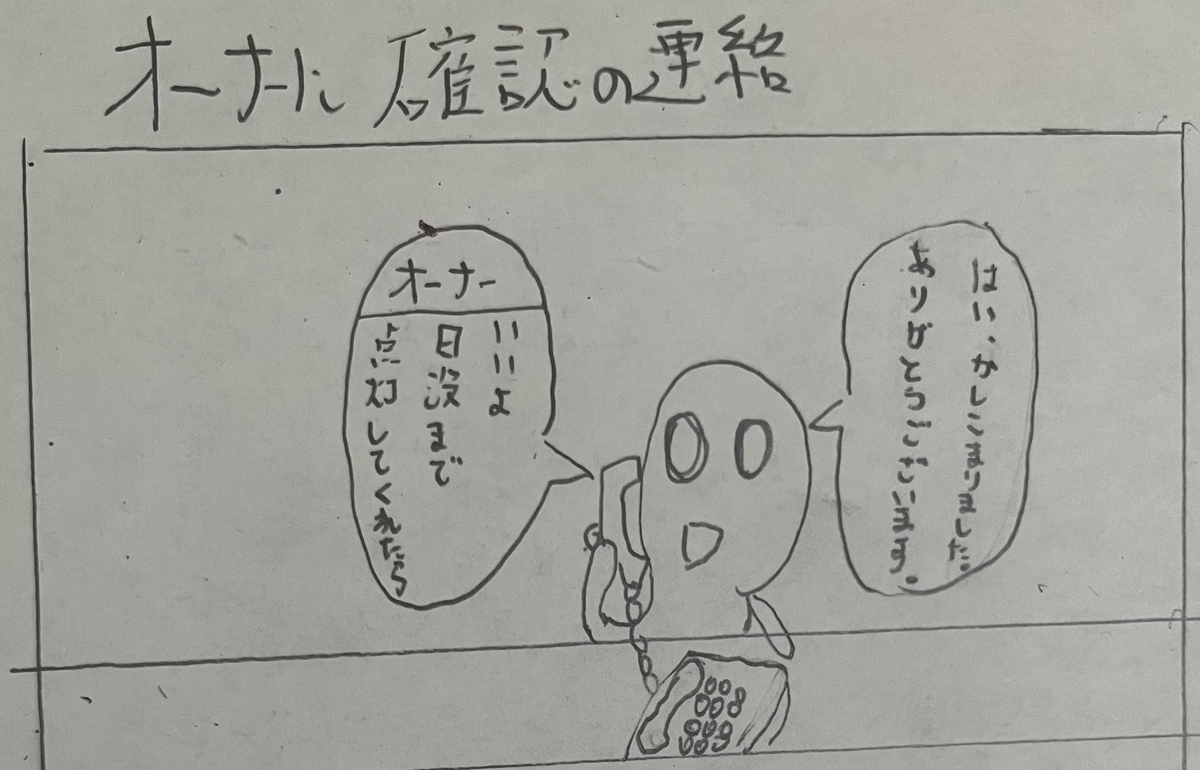 オーナーに確認の連絡
はい、かしこまりました。
ありがとうございます。
オーナー
いいよ
日没まで
点灯してくれたら